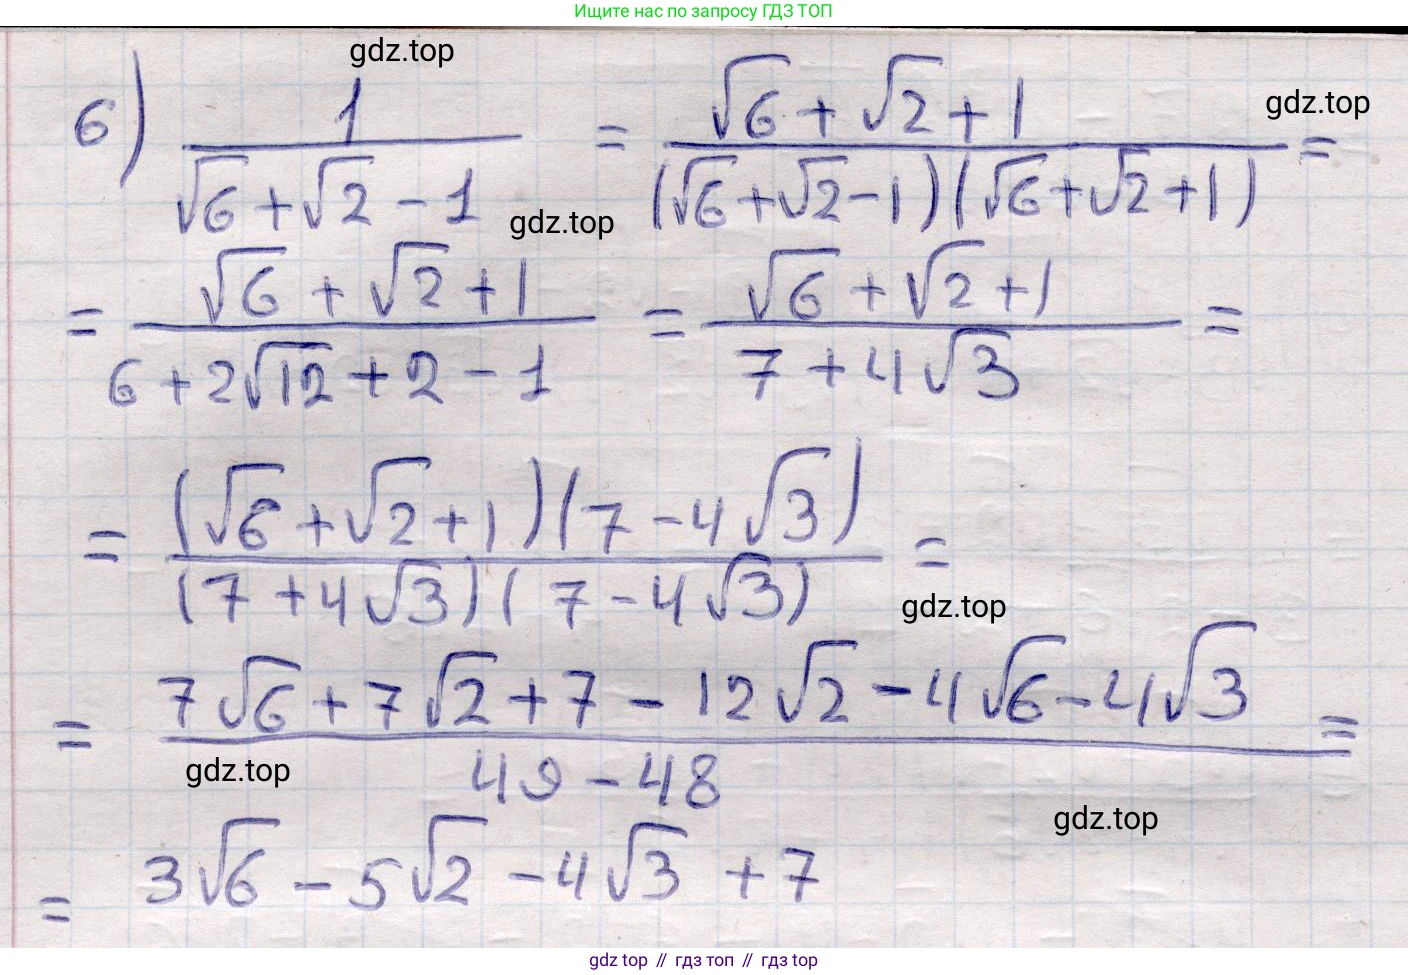 Ищите нас по запросу ГДЗ ТОП
gdz.top
6) 1/(√6 + √2 - 1) = (√6 + √2 + 1)/((√6 + √2 - 1)(√6 + √2 + 1)) =
gdz.top
gdz.top
= (√6 + √2 + 1)/(6 + 2√12 + 2 - 1) = (√6 + √2 + 1)/(7 + 4√3) =
= ((√6 + √2 + 1)(7 - 4√3))/((7 + 4√3)(7 - 4√3)) =
gdz.top
= (7√6 + 7√2 + 7 - 12√2 - 4√6 - 4√3)/(49 - 48) =
gdz.top
gdz.top
= 3√6 - 5√2 - 4√3 + 7
gdz top // гдз топ // gdz top